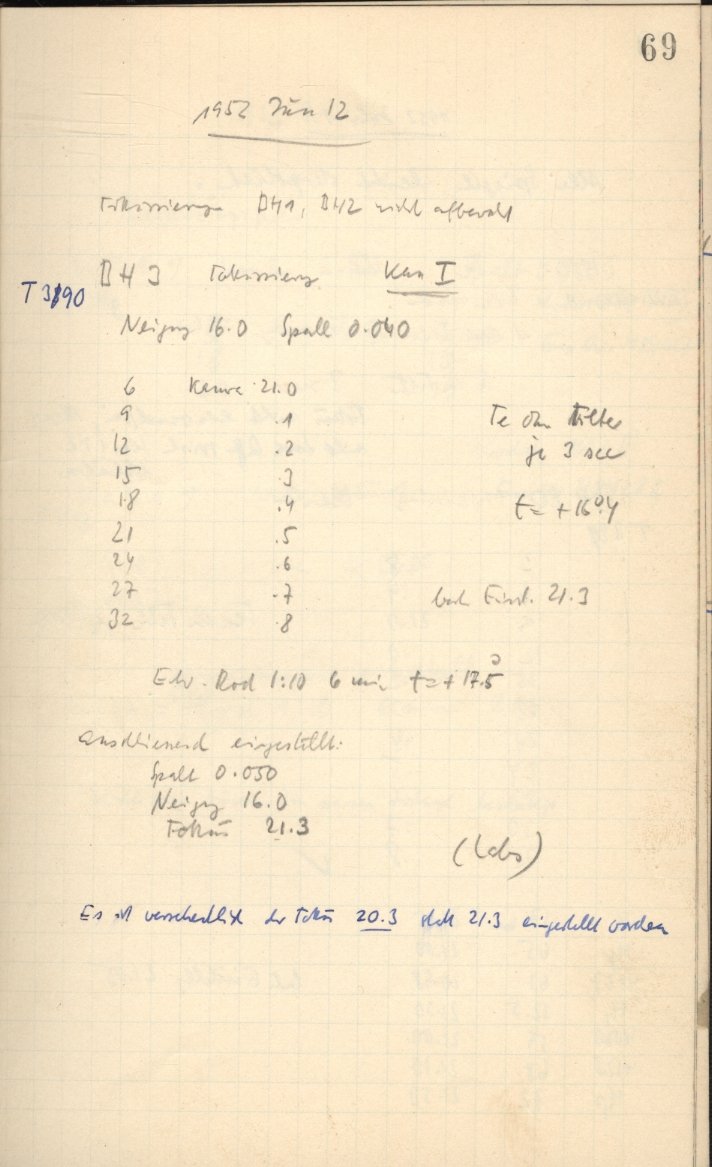 69
1952 Jun 12
Fokussierungen BH1, BH2 nicht aufbewahrt
T 3190
BH 3 Fokussierung Kam I
Neigung 16.0 Spalt 0.040
6 Kamera 21.0
9 .1
12 .2
15 .3
18 .4
21 .5
24 .6
27 .7
32 .8
Te ohne Filter
je 3 sec
t = +16°.4
beste Einst. 21.3
Entw. Rod 1:10 6 min t = +17.5°
anschliessend eingestellt:
Spalt 0.050
Neigung 16.0
Fokus 21.3
(Labs)
Es ist versehentlich der Fokus 20.3 statt 21.3 eingestellt worden